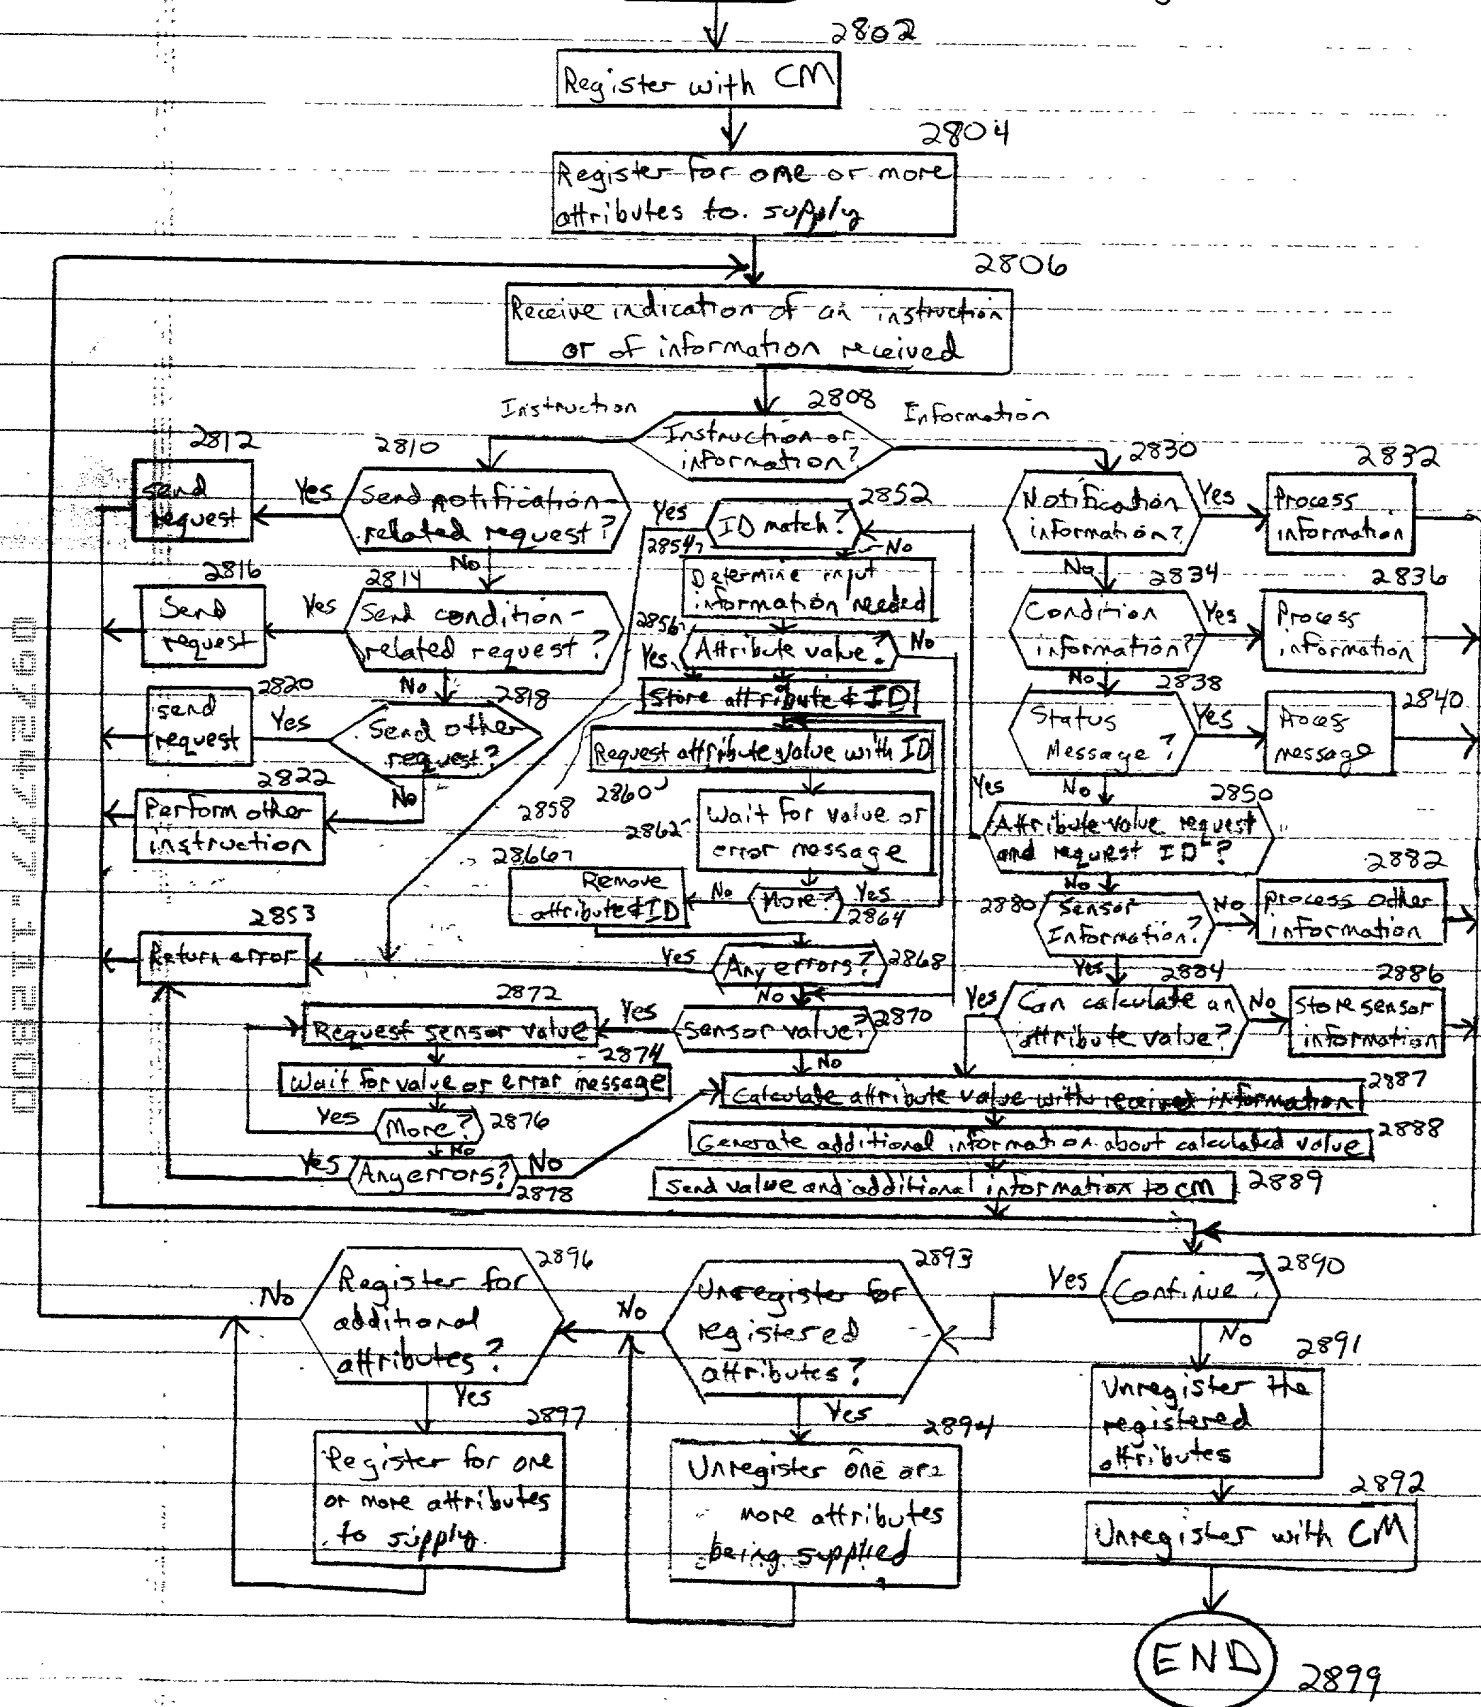 2802
Register with CM
2804
Register for one or more
attributes to supply
2806
Receive indication of an instruction
or of information received
2808
Instruction
Information
Instruction or
information?
2812
Send
request
Yes
2810
Send notification-
related request?
No
2816
Send
request
Yes
2814
Send condition-
related request?
No
2820
send
request
Yes
2818
Send other
request?
No
2822
Perform other
instruction
2852
Yes
ID match?
No
2854
Determine input
information needed
2856
Attribute value?
No
Yes
Store attribute & ID
2858
Request attribute value with ID
2860
2862
Wait for value or
error message
2866
Remove
attribute & ID
No
More?
Yes
2864
2853
Return error
Yes
Any errors?
2868
No
2872
Request sensor value
Yes
Sensor value?
2870
No
2874
Wait for value or error message
Yes
More?
2876
No
Yes
Any errors?
No
2878
2830
Notification
information?
Yes
2832
Process
information
No
2834
Condition
information?
Yes
2836
Process
information
No
2838
Status
Message?
Yes
2840
message
No
Yes
2850
Attribute value request
and request ID?
No
2880
Sensor
Information?
No
2882
Process other
information
Yes
2884
Yes
Can calculate an
attribute value?
No
2886
Store sensor
information
2887
Calculate attribute value with received information
2888
Generate additional information about calculated value
Send value and additional information to CM
2889
2896
No
Register for
additional
attributes?
Yes
2897
Register for one
or more attributes
to supply
2893
No
Unregister for
registered
attributes?
Yes
2894
Unregister one or
more attributes
being supplied
Yes
Continue?
2890
No
2891
Unregister the
registered
attributes
2892
Unregister with CM
END
2899